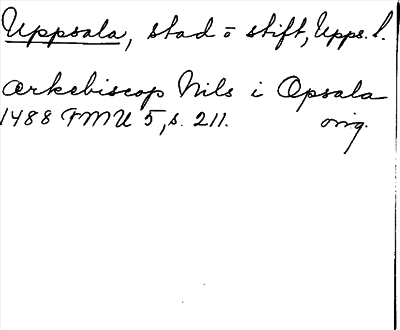 Uppsala, stad o stift, Upps. l.
ærkebiscop Nils i Opsala
1488 FMU 5, s. 211. orig.